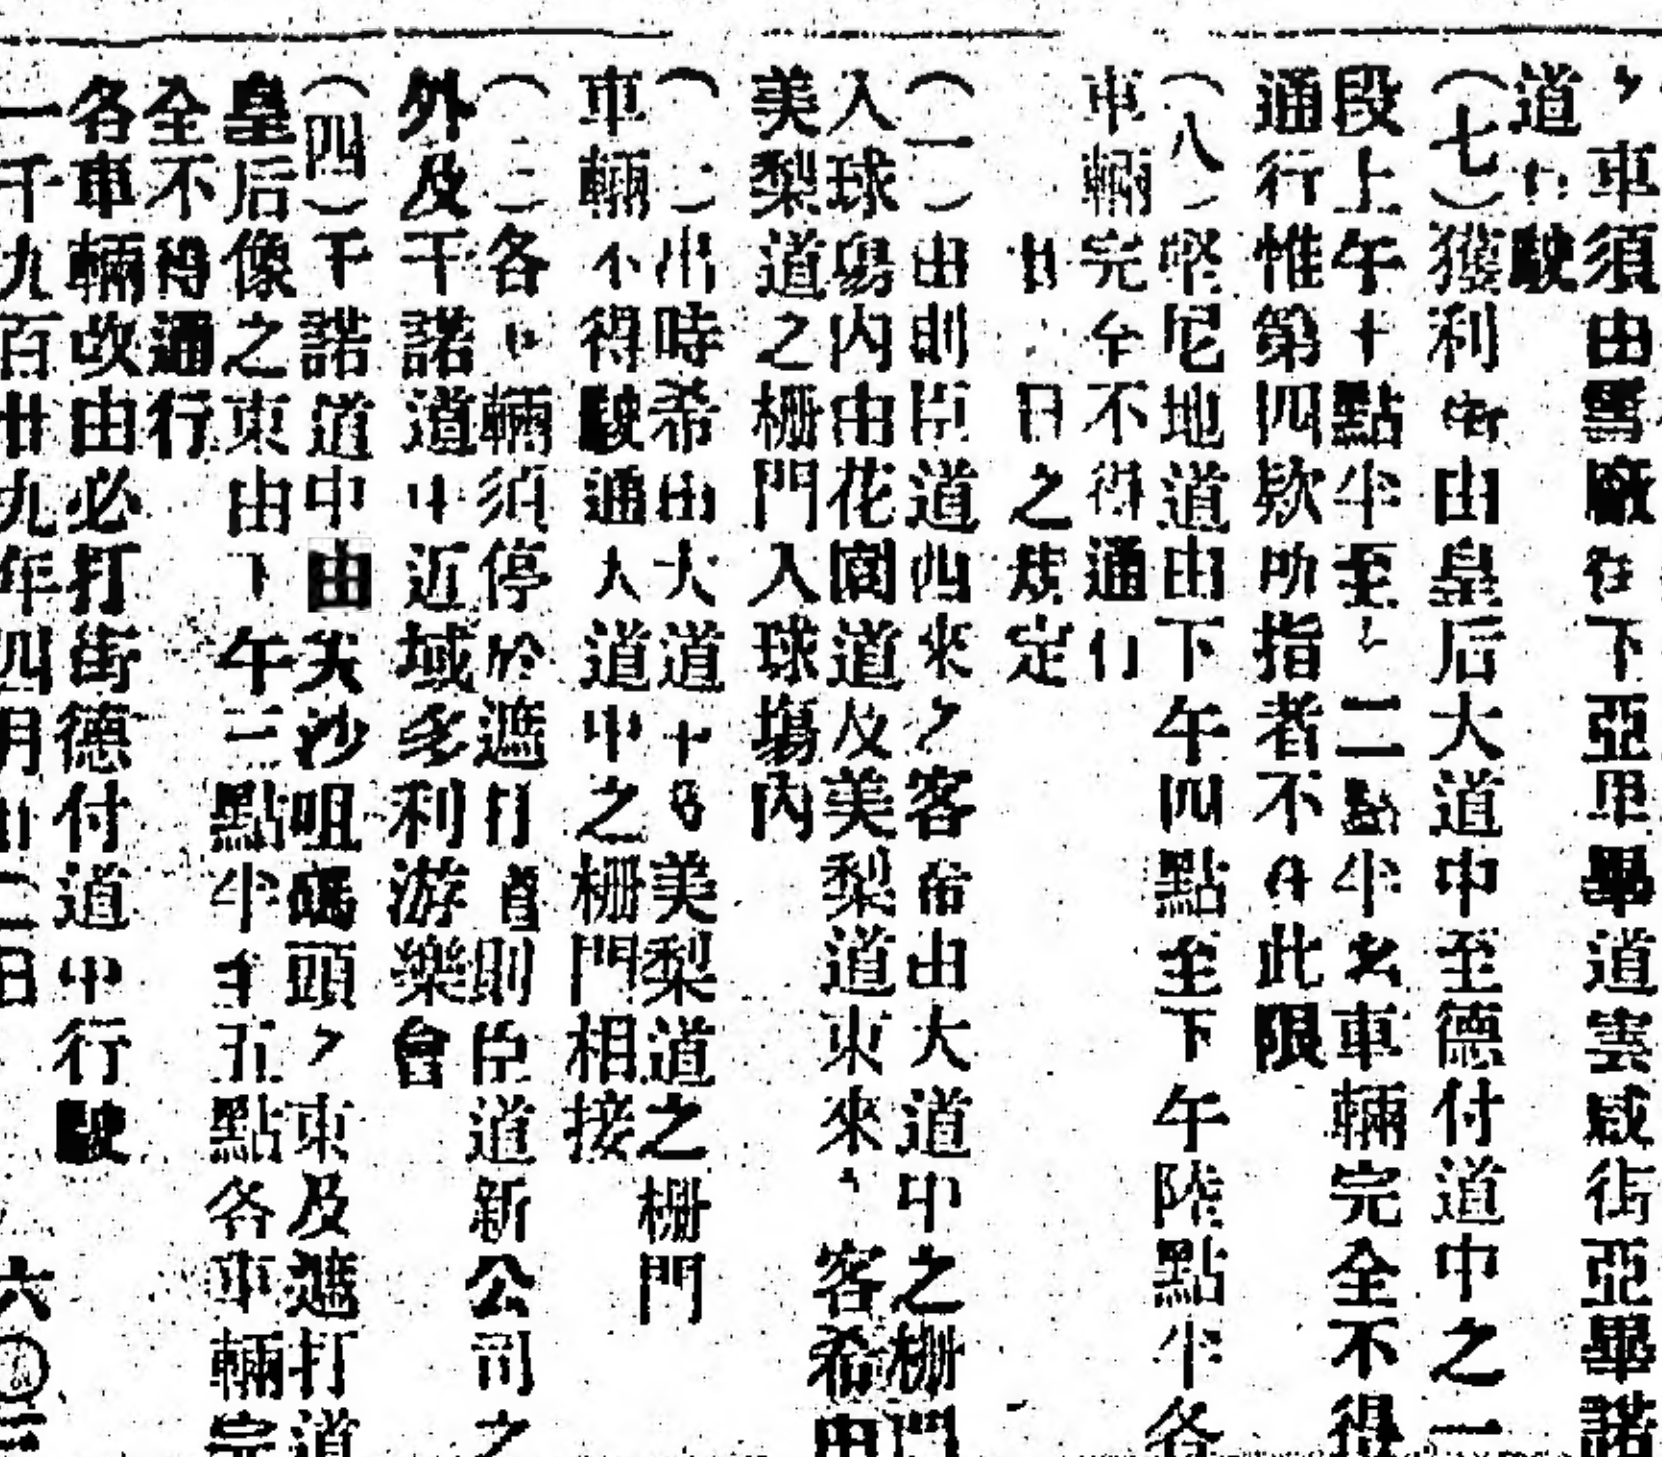 車須由雪廠街下亞里畢道雲咸街亞畢諾
道中駛
(七)獲利街由皇后大道中至德付道中之一
段上午十點半至十二點半各車輛完全不得
通行惟第四欵所指者不在此限
(八)堅尼地道由下午四點至下午陸點半各
車輛完全不得通行
日之規定
(一)由則臣道西來之客希由大道中之柵門
入球塲內由花園道及美梨道東來 客希由
美梨道之柵門入球塲內
(二)出時希由大道中 美梨道之柵門
車輛不得駛通大道中之柵門相接
(三)各 輛須停於遮打道則臣道新公司之
外及干諾道中近域多利游樂會
(四)干諾道中由尖沙咀碼頭之東及遮打道
皇后像之東由下午三點半至五點各車輛完
全不得通行
各車輛改由必打街德付道中行駛
一千九百廿九年四月 二日 六〇三